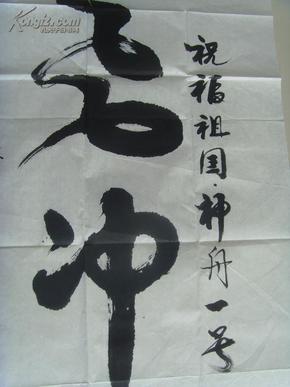 祝福祖国·神舟一号
冲
Kongfz.com
孔夫子旧书网